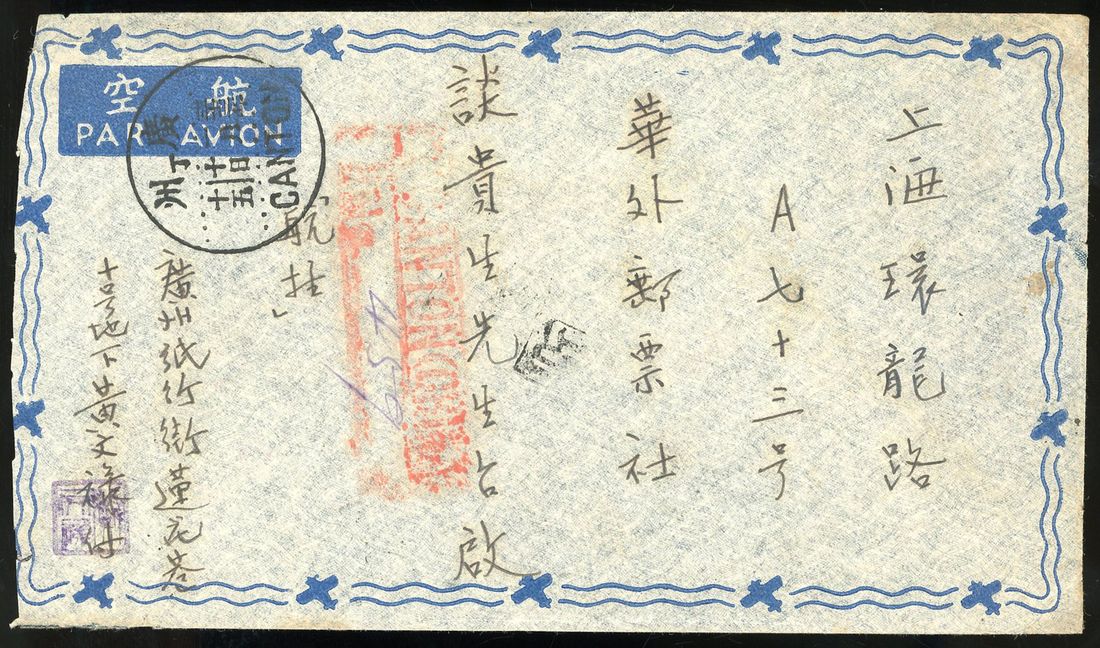 上海環龍路
A七十三号
華外郵票社
談貴生先生台啟
航挂
廣州紙行街蓮花巷
十号地下黃文祿付
航空
PAR AVION
廣州
CANTON
CANTON